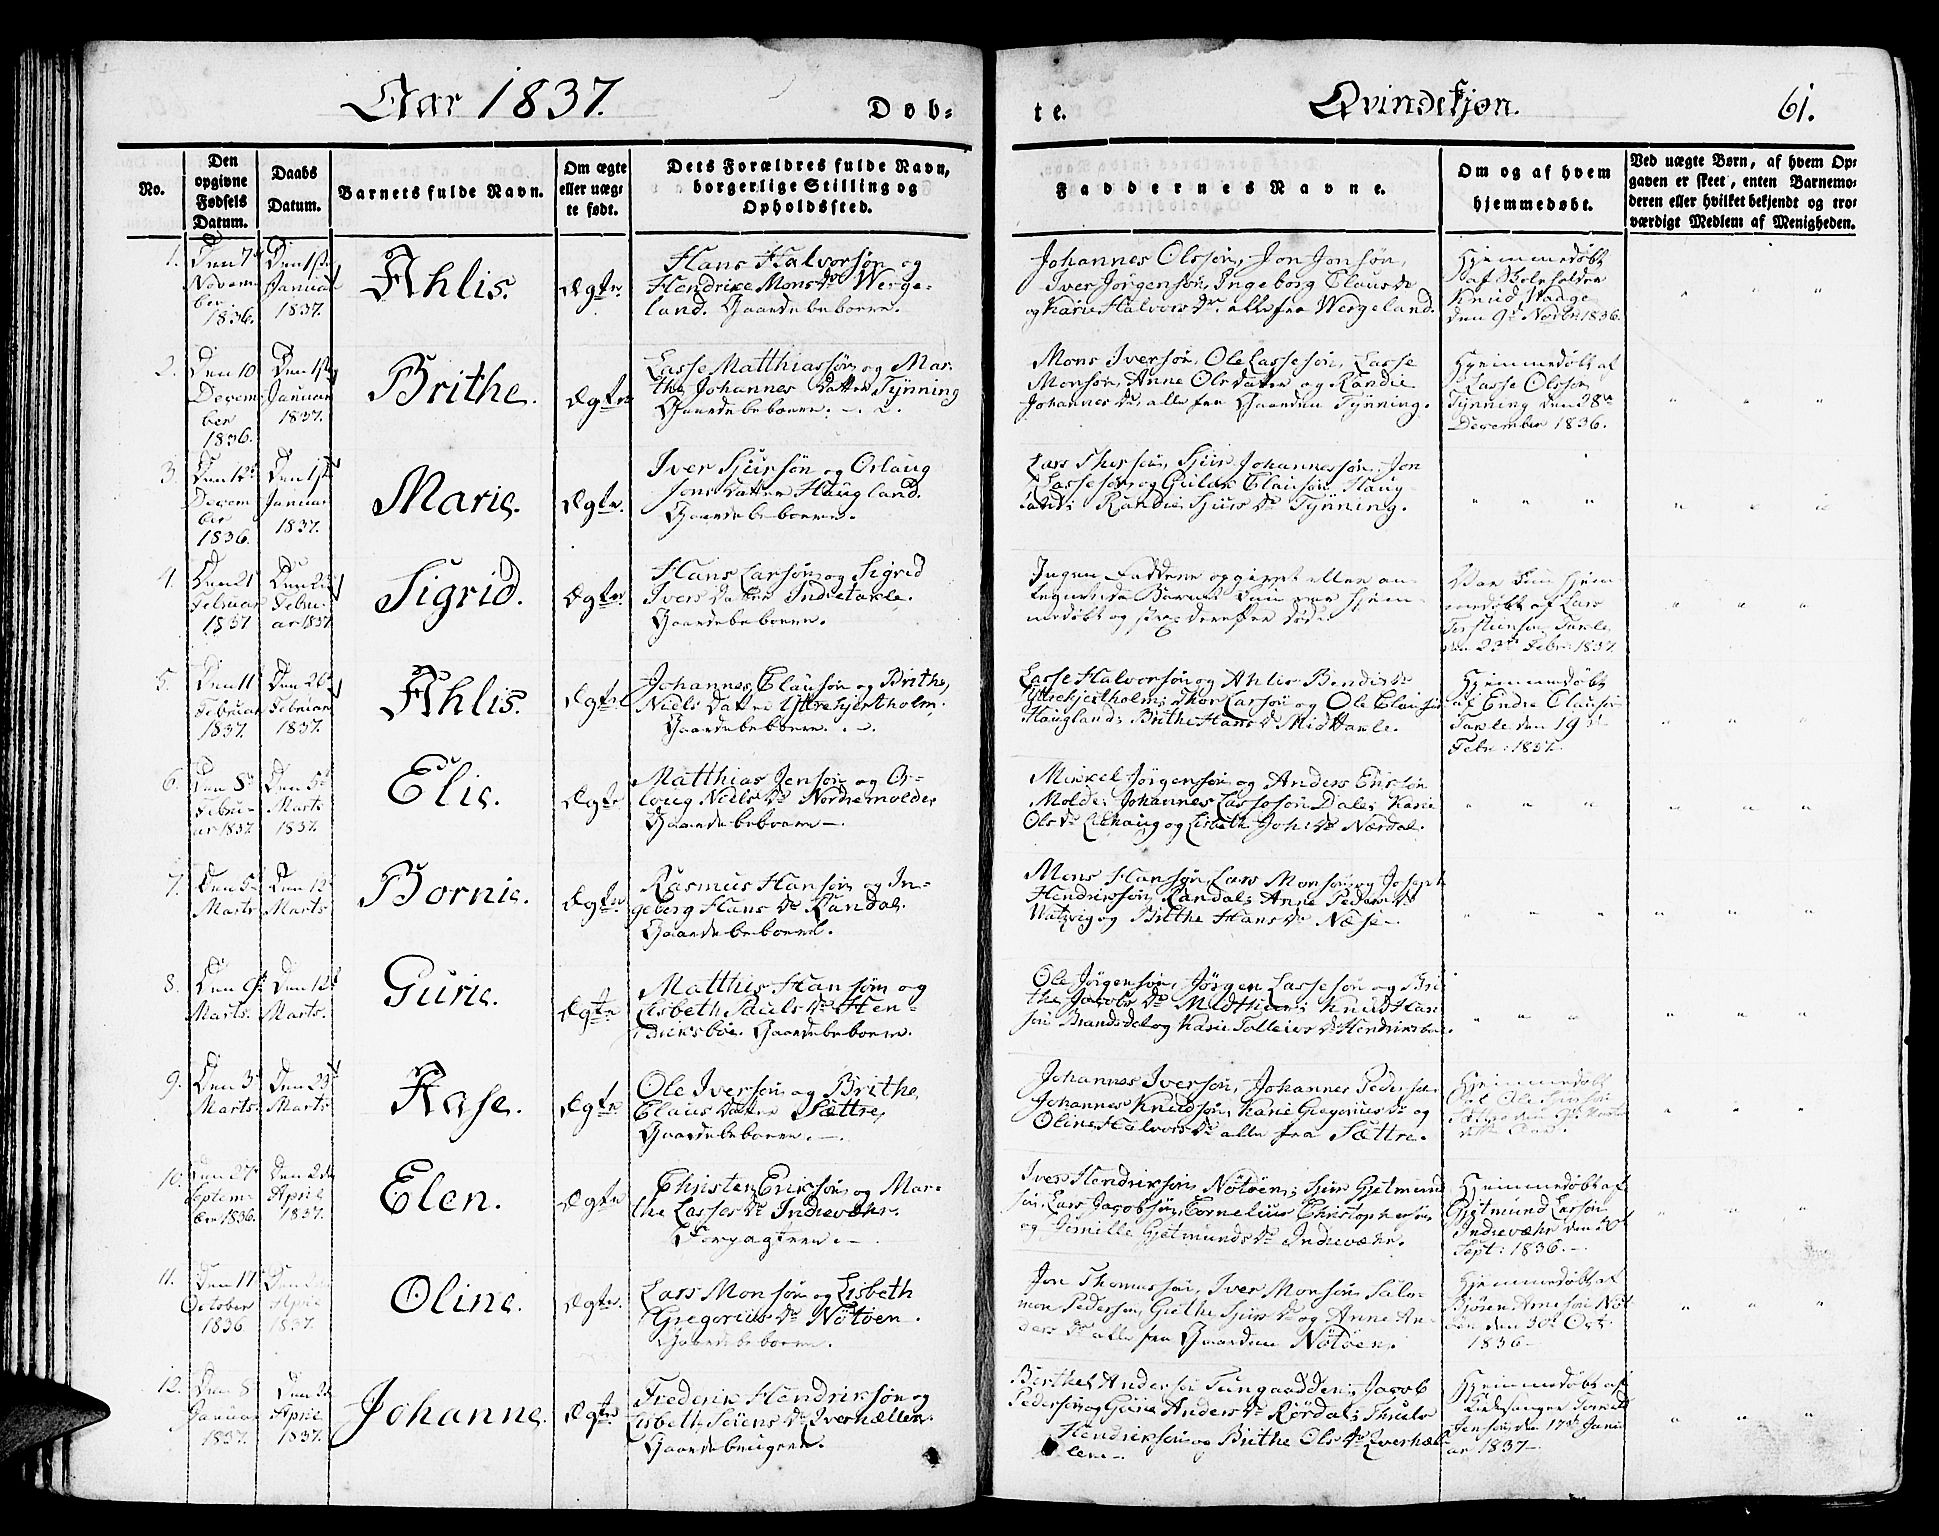 Aar 1837.
Døb=
te.
Qvindekjøn.
61.
No.
Den opgivne Fødsels Datum.
Daabs Datum.
Barnets fulde Navn.
Om ægte eller uægte født.
Dets Forældres fulde Navn, borgerlige Stilling og Opholdssted.
Faddernes Navne.
Om og af hvem hjemmedøbt.
Ved uægte Børn, af hvem Opgaven er skeet, enten Barnemoderen eller hvilket bekjendt og troværdigt Medlem af Menigheden.
1.
Den 7de
Novem
ber
1836.
Den 1ste
Januar
1837.
Ahlis.
Ægte.
Hans Halvorsøn og
Hendrike Mons Dr Werge-
land. Gaardebeboere.
Johannes Olssøn, Jon Jonsøn,
Iver Jørgensøn, Ingeborg Claus Dr
og Karie Halvors Dr alle fra Wergeland.
Hjemmedøbt
af Skoleholder
Knud
den 9de Novbr 1836.
2.
Den 10
Decem
ber
1836.
Den 1ste
Januar
1837.
Brithe.
Ægte
Lasse Matthiassøn og Mar-
the Johannes Datter Tÿnning
Gaardebeboere.
Mons Iversøn, Ole Lassesøn, Lasse
Monsøn, Anne Olsdatter og Randie
Johannes Dr, alle fra Gaarden Tÿnning.
Hjemmedøbt af
Lasse Olssøn
Tÿnning den 28de
December 1836.
3.
Den 12te
Decem
ber
1836.
Den 1ste
Januar
1837.
Marie.
Ægte.
Iver Sjursøn og Orlaug
Jons Datter Haugland.
Gaardebeboere.
Lars Sjur Johannessøn, Jon
Lassesøn og Gulak Clausøn Haug-
land; Randie Sjurs Dr Tÿnning.
4.
Den 21
Februar
1837
Den
Febru-
ar 1837.
Sigrid.
Ægte.
Hans Larsøn og Sigrid
Ivers Datter Indretakle.
Gaardebeboere.
Ingen Faddere opgivet eller an-
tegnet, da Barnet kun var hjem-
medøbt og strax derefter døde
Var kun hjem-
medøbt af Lars
Takle
den 23de Febr: 1837.
5.
Den 11
Februar
1837.
Den 26
Februar
1837.
Ahlis.
Ægte
Johannes Clausøn og Brithe
Niels Datter Ÿttrehjertholm.
Gaardebeboere.
Lasse Halvorsøn og Ahlis Bendix Dr
Ÿttrehjertholm; Thor Larsøn og Ole Clausøn
Haugland; Brithe Hans Dr Midttakle.
Hjemmedøbt
af Endre Clausøn
Takle den 19de
Febr: 1837.
6.
Den 8de
Febru-
ar 1837.
Den 5te
Marts
1837.
Elie.
Ægte
Matthias Jensøn og Or-
loug Niels Dr Nordremolde,
Gaardebeboere.
Mikkel Jørgensøn og Anders Eriksøn
Molde; Johannes Lassesøn Dale; Karie
Ols Dr Liehaug og Lisbeth Joh: Dr Nærdal.
7.
Den 5te
Marts
Den 12te
Marts
Bornie.
Ægte
Rasmus Hansøn og In-
geborg Hans Dr Randal.
Gaardebeboere.
Mons Hansøn, Lars Monsøn og Joseph
Hendriksøn, Randal; Anne Peders Dr
Watzvig og Brithe Hans Dr Næse.
8.
Den
Marts.
Den 12te
Marts.
Gurie.
Ægte
Matthis Hansøn og
Lisbeth Pauls Dr Hen-
driksbøe. Gaardebeboere.
Ole Jørgensøn, Jørgen Lassesøn og Bri-
the Jacobs Dr Knud Han-
søn Brandsdal og Karie Tolleivs Dr Hendriksboe.
9.
Den 3
Marts
Den 23de
Marts
Aase.
Ægte
Ole Iversøn og Brithe
Claus Datter Sættre,
Gaardebeboere.
Johannes Iversøn, Johannes Pedersøn
Johannes Knudsøn, Karie Gregorius Dr og
Oline Halvors Dr alle fra Sættre.
Hjemmedøbt
Ole Iversøn
Marts
dette Aar.
10.
Den 27
Septem-
ber 1836.
Den 2den
April
1837.
Elen.
Ægte
Christen Eriksøn og Mar-
the Lasses Dr Indrevæhr.
Forpagtere.
Iver Hendriksøn Nötöen; Sjur Gjetmund
søn, Lars Jacobsøn, Cornelius Christophersøn
og Jemille Gjetmunds Dr Indrevæhr.
Hjemmedøbt af
Gjetmund Larsøn
Indrevæhr den 30
Sept: 1836.
11.
Den 17
October
1836
Den
April
1837.
Oline.
Ægte.
Lars Monsøn og Lisbeth
Gregorius Dr Nötöen.
Gaardebeboere.
Jon Thomassøn, Iver Monsøn, Salo-
mon Pedersøn, Grethe Sjurs Dr og Anne An-
ders Dr alle fra Gaarden Nötöen.
Hjemmedøbt af
Arnesøn Nöt
öen den 30te Oct:
1836.
12.
Den 8
Januar
1837.
Den
April
1837.
Johanne.
Ægte
Frederik Hendriksøn og
Lisbeth Sörens Dr Qverhællen.
Gaardebrugere.
Berthel Andersøn Tungaadden; Jacob
Pedersøn og Gurie Anders Dr Rördal; Thule
Hendriksøn og Brithe Ols Dr Qverhæl-
len.
Hjemmedøbt af
Kirkesanger
Jensøn den 17de Janu
ar 1837